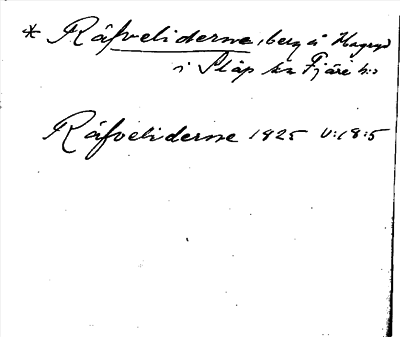 * Råfveliderne, berg å Hagryd
i Släp sn Fjäre h:d
Råfveliderne 1825 V:18:5